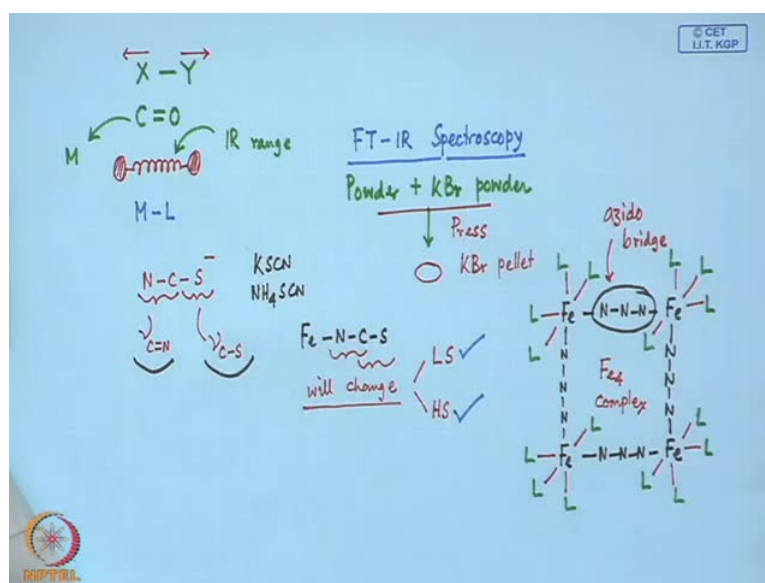 © CET
I.I.T. KGP
X - Y
C=O
M
IR range
M-L
N-C-S⁻
KSCN
NH4SCN
νC=N
νC-S
FT-IR Spectroscopy
Powder + KBr powder
Press
KBr pellet
Fe-N-C-S
will change
LS ✓
HS ✓
azido
bridge
L L L L
L-Fe-N-N-N-Fe-L
L L L
N N
N N
N N
Fe4
complex
L L
L-Fe-N-N-N-Fe-L
L L L L
NPTEL